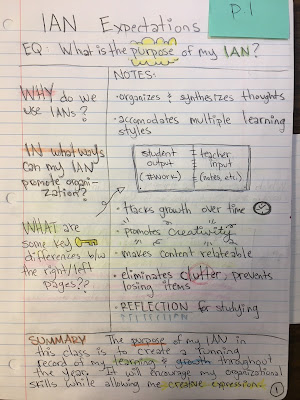 p.1
IAN Expectations
EQ: What is the purpose of my IAN?
NOTES:
WHY do we
use IANs?
• organizes & synthesizes thoughts
• accomodates multiple learning
styles
IN what ways
can my IAN
promote organi-
zation?
student
output
(HWORK)
teacher
input
(notes, etc.)
• tracks growth over time
• promotes creativity
• makes content relateable
• eliminates clutter, prevents
losing items
• REFLECTION for studying
WHAT are
some key
differences b/w
the right/left
pages??
SUMMARY The purpose of my IAN in
this class is to create a running
record of my learning & growth throughout
the year. It will encourage my organizational
skills while allowing me creative expression.
1